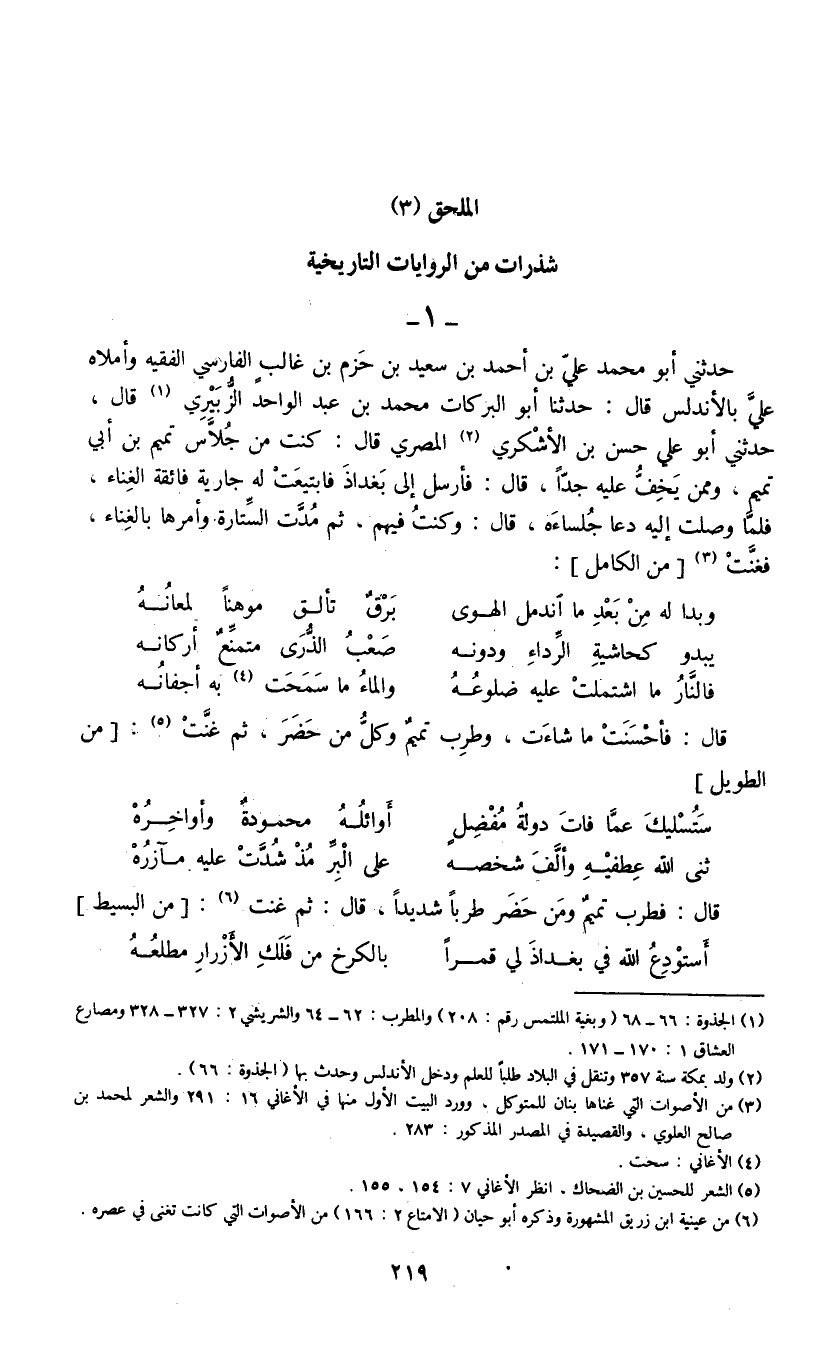 الملحق (٣)
شذرات من الروايات التاريخية
- ١ -
حدثني أبو محمد عليّ بن أحمد بن سعيد بن حَزم بن غالبٍ الفارسي الفقيه وأملاه
عليَّ بالأندلس قال : حدثنا أبو البركات محمد بن عبد الواحد الزُّبَيْرِي (١) قال ،
حدثني أبو علي حسن بن الأشْكري (٢) المصري قال : كنت من جُلاَّس تميم بن أبي
تميم ، وممن يَخِفُّ عليه جدّاً ، قال : فأرسل إلى بَغداذَ فابتيعَتْ له جارية فائقة الغِناء ،
فلمَّا وصلت إليه دعا جُلساءَه ، قال : وكنتُ فيهم . ثم مُدَّت السِّتارة وأمرها بالغِناء ،
فغنَّتْ (٣) [ من الكامل ] :
وبدا له مِنْ بَعْدِ ما آندمل الهوى بَرْقٌ تألـق موهناً لمعانُـــهُ
يبدو كحاشيةِ الرِّداءِ ودونـه صَعْبُ الذُّرَى متمنِّعٌ أركانـه
فالنَّارُ ما اشتملتْ عليه ضلوعُـهُ والماءُ ما سَمَحَت (٤) به أجفانُـه
قال : فأحْسَنَتْ ما شاءَت ، وطرِب تميمٌ وكلُّ من حَضَرَ ، ثم غنَّتْ (٥) : [ من
الطويل ]
سَتُسْليكَ عمَّا فاتَ دولةُ مُفْضِلٍ أوائلُـهُ محمـودةٌ وأواخِـرُهْ
ثنى الله عِطفيْـهِ وألَّفَ شخصـه على الْبِرِّ مُذْ شُدَّتْ عليه مـآزرُهْ
قال : فطرب تميمٌ ومَن حَضَر طرباً شديداً ، قال : ثم غنت (٦) : [ من البسيط ]
أستوْدِعُ الله في بغـداذَ لي قمـراً بالكرخ من فَلَكِ الأزْرارِ مطلعُـهُ
(١) الجذوة : ٦٦ ـ ٦٨ ( وبغية الملتمس رقم : ٢٠٨ ) والمطرب : ٦٢ ـ ٦٤ والشريشي ٢ : ٣٢٧ ـ ٣٢٨ ومصارع
العشاق ١ : ١٧٠ ـ ١٧١ .
(٢) ولد بمكة سنة ٣٥٧ وتنقل في البلاد طلباً للعلم ودخل الأندلس وحدث بها ( الجذوة : ٦٦ ) .
(٣) من الأصوات التي غناها بنان للمتوكل ، وورد البيت الأول منها في الأغاني ١٦ : ٢٩١ والشعر لمحمد بن
صالح العلوي ، والقصيدة في المصدر المذكور : ٢٨٣ .
(٤) الأغاني : سحت .
(٥) الشعر للحسين بن الضحاك ، انظر الأغاني ٧ : ١٥٤ ، ١٥٥ .
(٦) من عينية ابن زريق المشهورة وذكره أبو حيان ( الامتاع ٢ : ١٦٦ ) من الأصوات التي كانت تغنى في عصره .
٢١٩